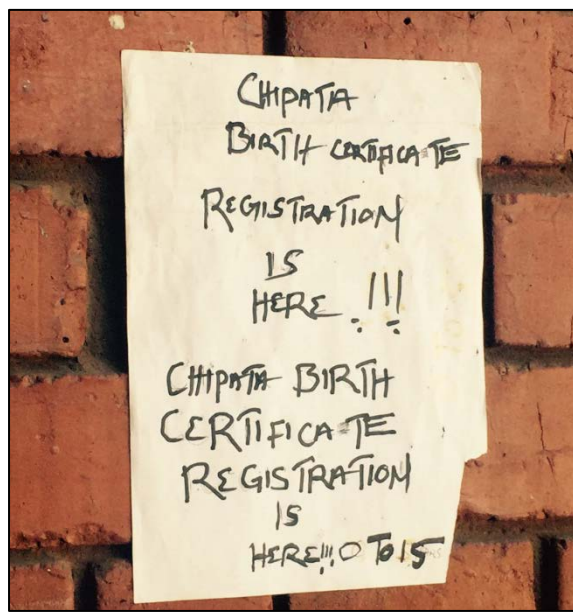 CHIPATA
BIRTH CERTIFICATE
REGISTRATION
IS
HERE !!!
CHIPATA BIRTH
CERTIFICATE
REGISTRATION
IS
HERE!!! 0 TO 15